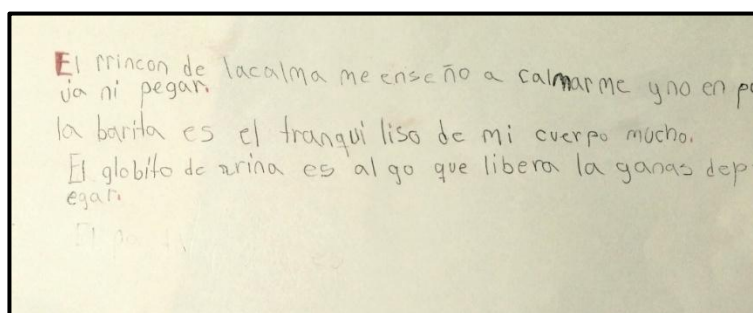 El rrincon de lacalma me enseño a calmarme y no en p
ja ni pegar.
la barita es el tranqui liso de mi cuerpo mucho.
El globito de arina es al go que libera la ganas dep
egar.